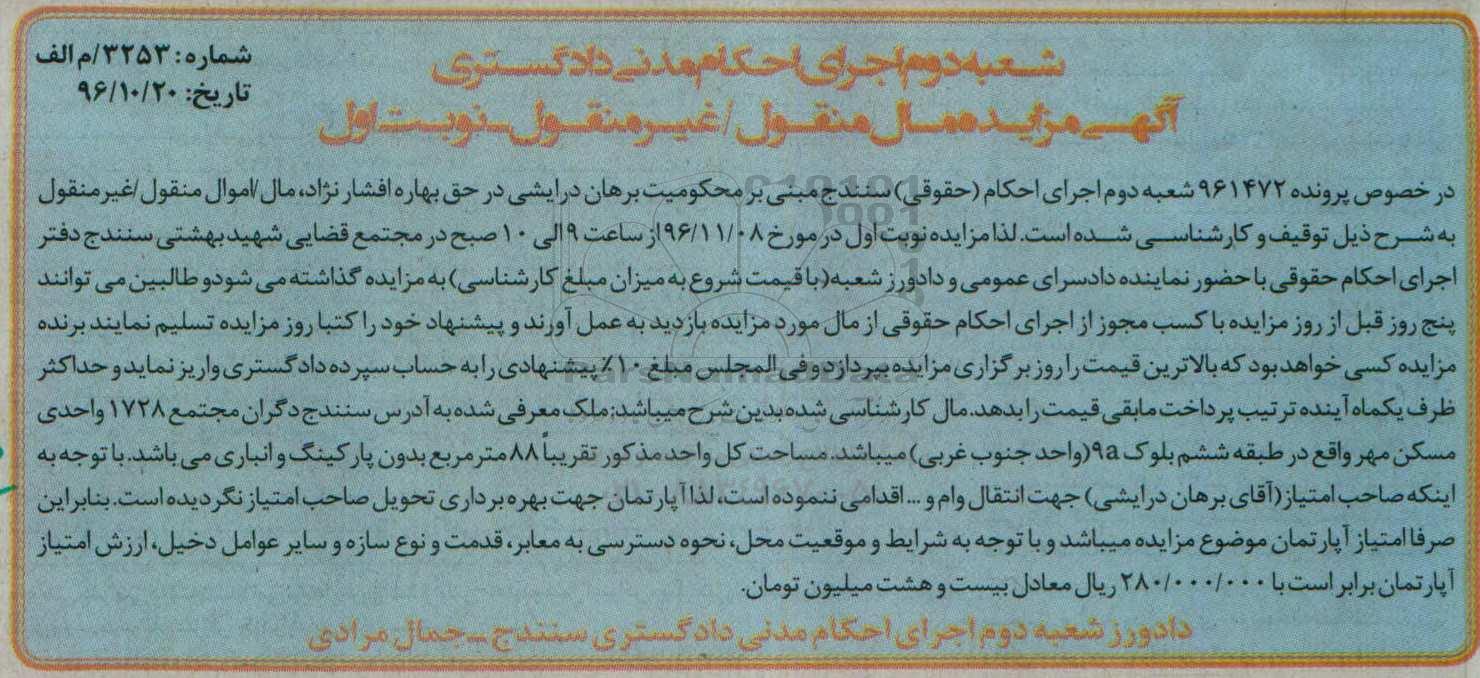 شعبه دوم اجرای احکام مدنی دادگستری
آگهی مزایده مال منقول/غیرمنقول-نوبت اول
شماره: ۳۲۵۳/م الف
تاریخ: ۹۶/۱۰/۲۰
در خصوص پرونده ۹۶۱۴۷۲ شعبه دوم اجرای احکام (حقوقی) سنندج مبنی بر محکومیت برهان درایشی در حق بهاره افشار نژاد، مال/اموال منقول/غیرمنقول
به شرح ذیل توقیف و کارشناسی شده است. لذا مزایده نوبت اول در مورخ ۹۶/۱۱/۰۸ از ساعت ۹ الی ۱۰ صبح در مجتمع قضایی شهید بهشتی سنندج دفتر
اجرای احکام حقوقی با حضور نماینده دادسرای عمومی و دادورز شعبه (با قیمت شروع به میزان مبلغ کارشناسی) به مزایده گذاشته می شود و طالبین می توانند
پنج روز قبل از روز مزایده با کسب مجوز از اجرای احکام حقوقی از مال مورد مزایده بازدید به عمل آورند و پیشنهاد خود را کتبا روز مزایده تسلیم نمایند برنده
مزایده کسی خواهد بود که بالاترین قیمت را روز برگزاری مزایده بپردازد و فی المجلس مبلغ ۱۰٪ پیشنهادی را به حساب سپرده دادگستری واریز نماید و حداکثر
ظرف یکماه آینده ترتیب پرداخت مابقی قیمت را بدهد. مال کارشناسی شده بدین شرح میباشد: ملک معرفی شده به آدرس سنندج دگران مجتمع ۱۷۲۸ واحدی
مسکن مهر واقع در طبقه ششم بلوک ۹a (واحد جنوب غربی) میباشد. مساحت کل واحد مذکور تقریباً ۸۸ متر مربع بدون پارکینگ و انباری می باشد. با توجه به
اینکه صاحب امتیاز (آقای برهان درایشی) جهت انتقال وام و ... اقدامی ننموده است، لذا آپارتمان جهت بهره برداری تحویل صاحب امتیاز نگردیده است. بنابراین
صرفا امتیاز آپارتمان موضوع مزایده میباشد و با توجه به شرایط و موقعیت محل، نحوه دسترسی به معابر، قدمت و نوع سازه و سایر عوامل دخیل، ارزش امتیاز
آپارتمان برابر است با ۲۸۰/۰۰۰/۰۰۰ ریال معادل بیست و هشت میلیون تومان.
دادورز شعبه دوم اجرای احکام مدنی دادگستری سنندج - جمال مرادی
ParsNamadData